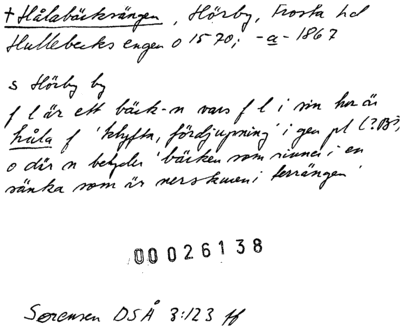 + Hålabäcksängen, Hörby, Frosta hd
Hullebecks engen o 1570; -a- 1867
s Hörby by
f l är ett bäck-n vars f l i sin tur är
håla f 'klyfta, fördjupning' i gen pl (?B?),
o där n betyder 'bäcken som rinner i en
sänka som är nerskuren i terrängen'
00026138
Sørensen DSÅ 3:123 ff